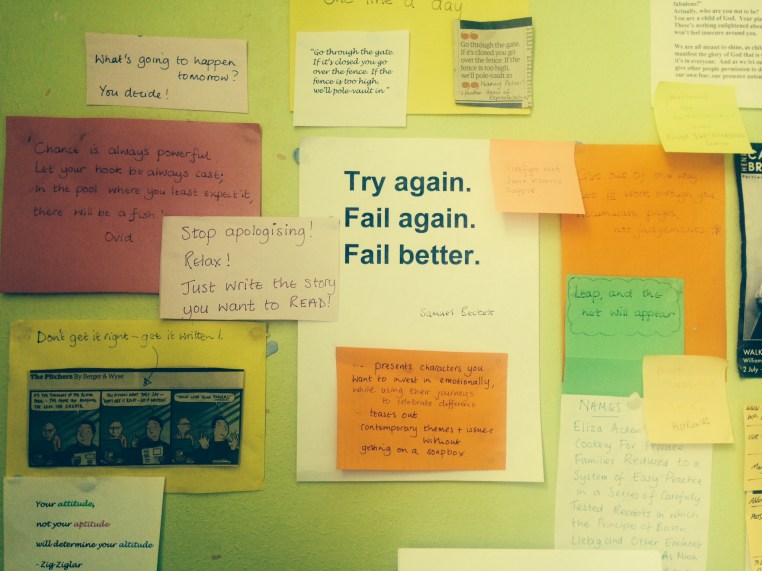 One line a day
fabulous?"
Actually, who are you not to be?
You are a child of God. Your
There's nothing enlightened about
won't feel insecure around you.
We are all meant to shine, as
manifest the glory of God that is
it's in everyone. And as we let
give other people permission to
our own fear, our presence
What's going to happen
tomorrow?
You decide!
"Go through the gate.
If it's closed you go
over the fence. If the
fence is too high,
we'll pole-vault in"
Go through the gate.
If it's closed you go
over the fence. If the
fence is too high,
we'll pole-vault in
Chance is always powerful
Let your hook be always cast;
In the pool where you least expect it,
there will be a fish
Ovid
Stop apologising!
Relax!
Just write the story
you want to READ!
Try again.
Fail again.
Fail better.
Samuel Beckett
presents characters you
want to invest in emotionally,
while using their journeys
to celebrate difference
teases out
contemporary themes + issues
without
getting on a soapbox
Get out of the way
work through you
not judgements
Leap, and the
net will appear
Don't get it right - get it written!
The Pitchers By Berger & Wyse
Your attitude,
not your aptitude
will determine your altitude
- Zig Ziglar
NAMES
Eliza
Cookery For Private
Families Reduced to a
System of Easy Practice
in a Series of Carefully
Tested Receipts in which
the Principle of Baron
Liebig and Other Eminent
WALK
2 July -